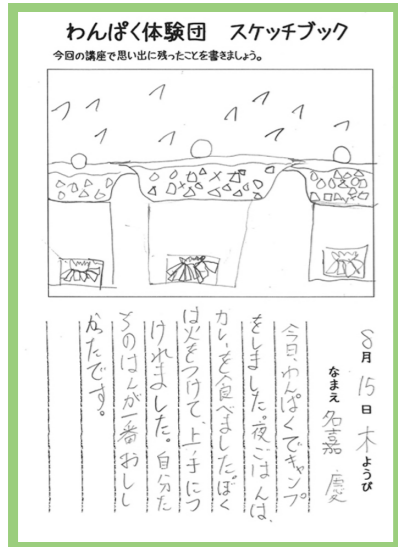 わんぱく体験団　スケッチブック
今回の講座で思い出に残ったことを書きましょう。
8月15日木ようび
なまえ 名嘉 慶
今日、わんぱくでキャンプ
をしました。夜ごはんは、
カレーを食べました。ぼく
は火をつけて、上手につ
けれました。自分た
ちのはんが一番おしし
かったです。